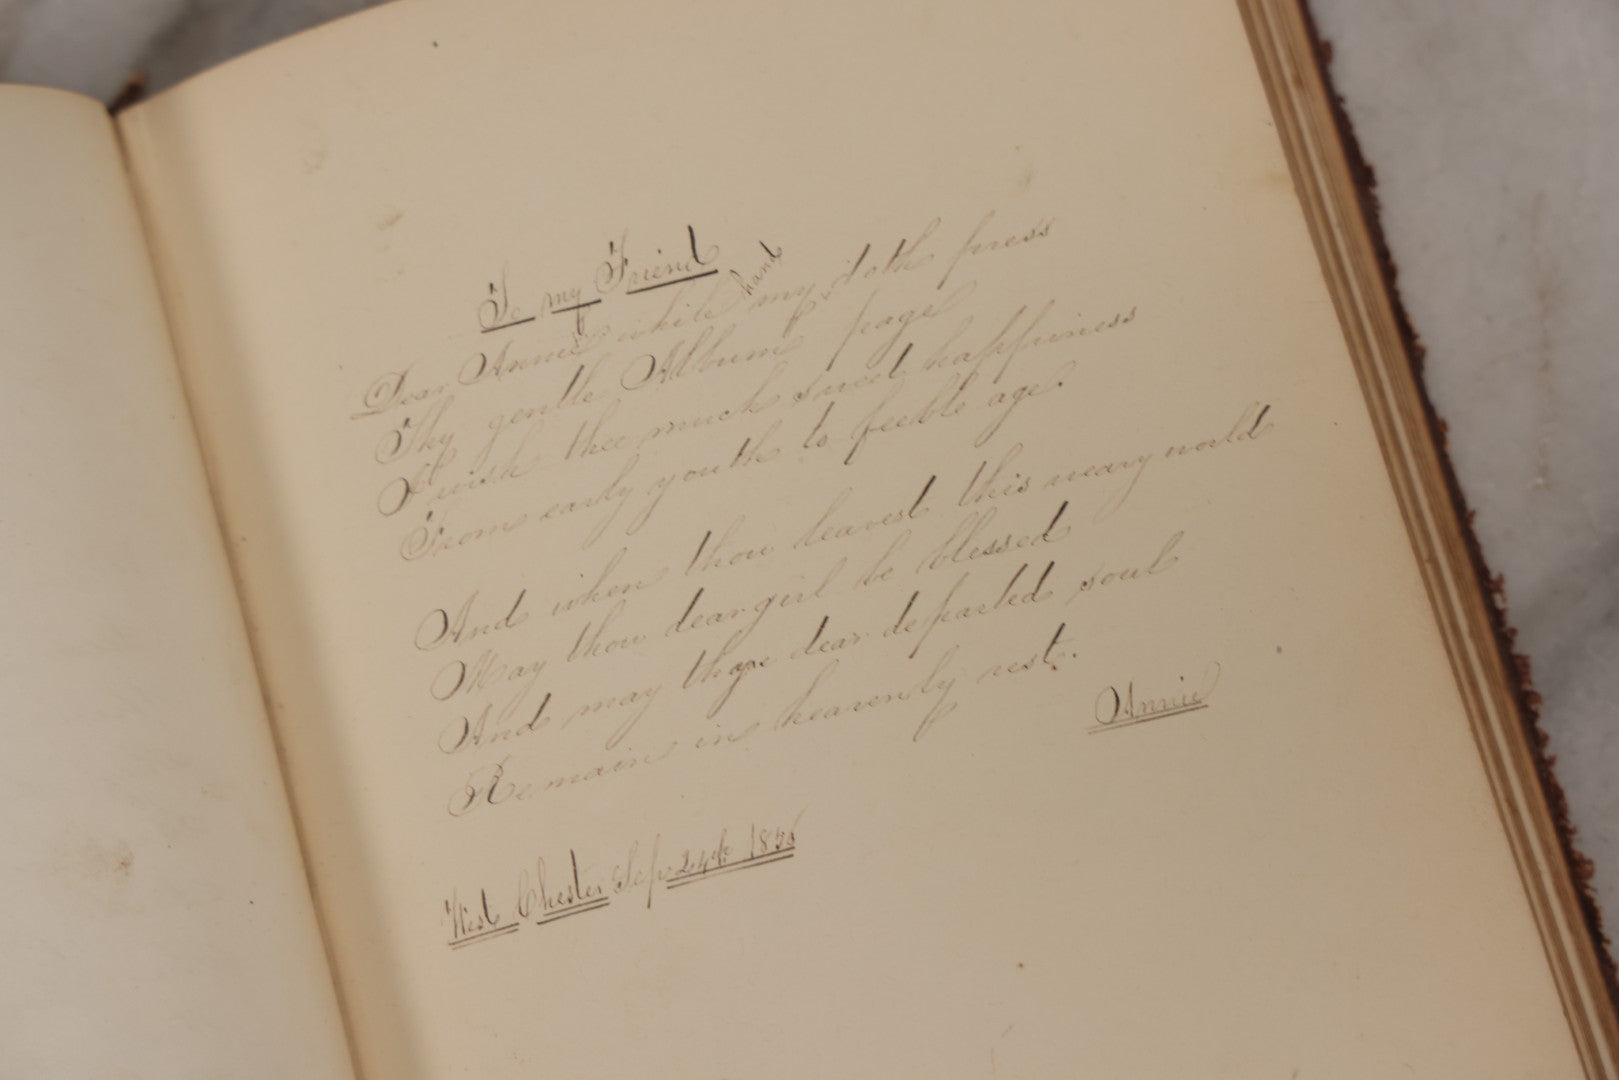 To my Friend
Dear Annie while my hand doth press
Thy gentle Album page
I wish thee much sweet happiness
From early youth to feeble age.
And when thou leavest this weary world
May thou dear girl be blessed
And may thyne dear departed soul
Remain in heavenly rest.
Annie
West Chester Sep 24th 1856